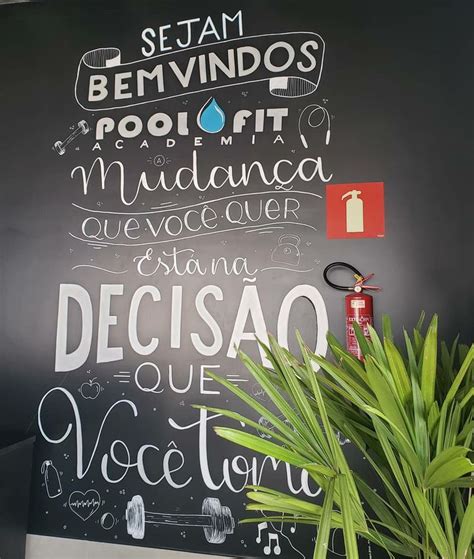 SEJAM
BEM VINDOS
POOL FIT
ACADEMIA
A
Mudança
QUE VOCÊ QUER
Está na
DECISÃO
QUE
Você toma